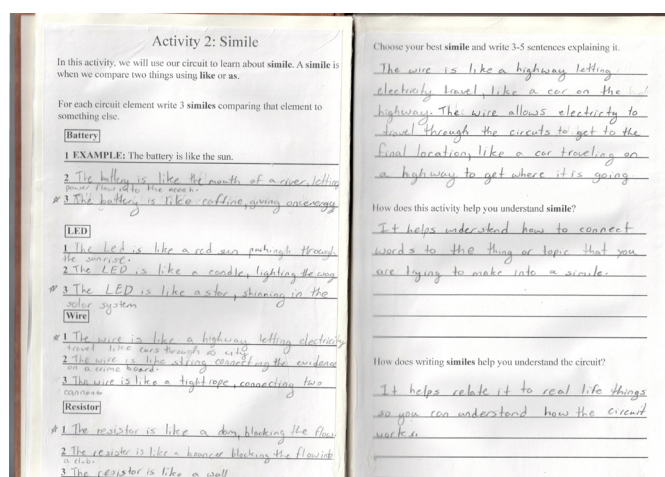 Activity 2: Simile
In this activity, we will use our circuit to learn about simile. A simile is
when we compare two things using like or as.
For each circuit element write 3 similes comparing that element to
something else.
Battery
1 EXAMPLE: The battery is like the sun.
2 The battery is like the mouth of a river, letting
power flow into the ocean.
3 The battery is like caffine, giving one energy
LED
1 The Led is like a red sun through
the sunrise.
2 The LED is like a candle, lighting the way
3 The LED is like a star, shinning in the
solar system
Wire
1 The wire is like a highway letting electricity
travel like cars through a city
2 The wire is like string connecting the evidence
on a crime board.
3 The wire is like a tight rope, connecting two
Resistor
1 The resistor is like a dam, blocking the flow.
2 The resister is like a bouncer blocking the flow into
a club.
3 The resistor is like a wall
Choose your best simile and write 3-5 sentences explaining it.
The wire is like a highway letting
electricity travel, like a car on the
highway. The wire allows electricty to
travel through the circuts to get to the
final location, like a car traveling on
a highway to get where it is going.
How does this activity help you understand simile?
It helps understand how to connect
words to the thing or topic that you
are trying to make into a simile.
How does writing similes help you understand the circuit?
It helps relate it to real life things
so you can understand how the circuit
works.